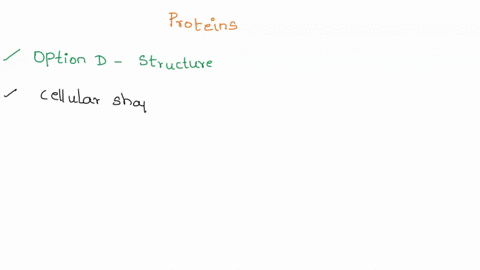 Proteins
Option D - Structure
Cellular shap